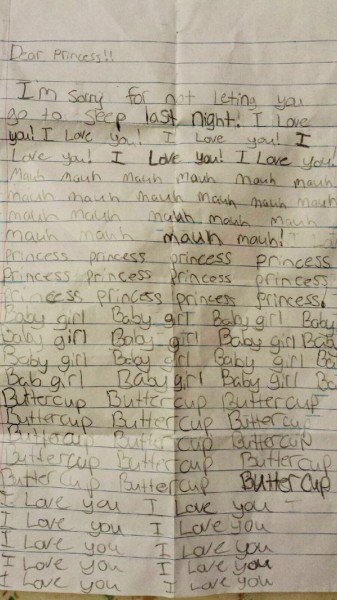 Dear Princess!!
I'm sorry for not leting you
go to sleep last night! I Love
you! I Love you! I Love you! I
Love you! I Love you! I Love you!
Mauh mauh mauh mauh mauh mauh
mauh mauh mauh mauh mauh mauh
mauh mauh mauh mauh mauh
mauh mauh mauh mauh!
Princess princess princess princess
Princess princess princess princess
Princess princess princess princess.
Baby girl Baby girl Baby girl Baby
Baby girl Baby girl Baby girl Ba
Baby girl Baby girl Baby girl Ba
Bab girl Baby girl Baby girl Ba
Buttercup Buttercup Buttercup
Buttercup Buttercup Buttercup
Buttercup Buttercup Buttercup
Buttercup Buttercup Buttercup
Buttercup Buttercup Buttercup
I Love you I Love you
I Love you I Love you
I Love you I Love you
I Love you I Love you
I Love you I Love you